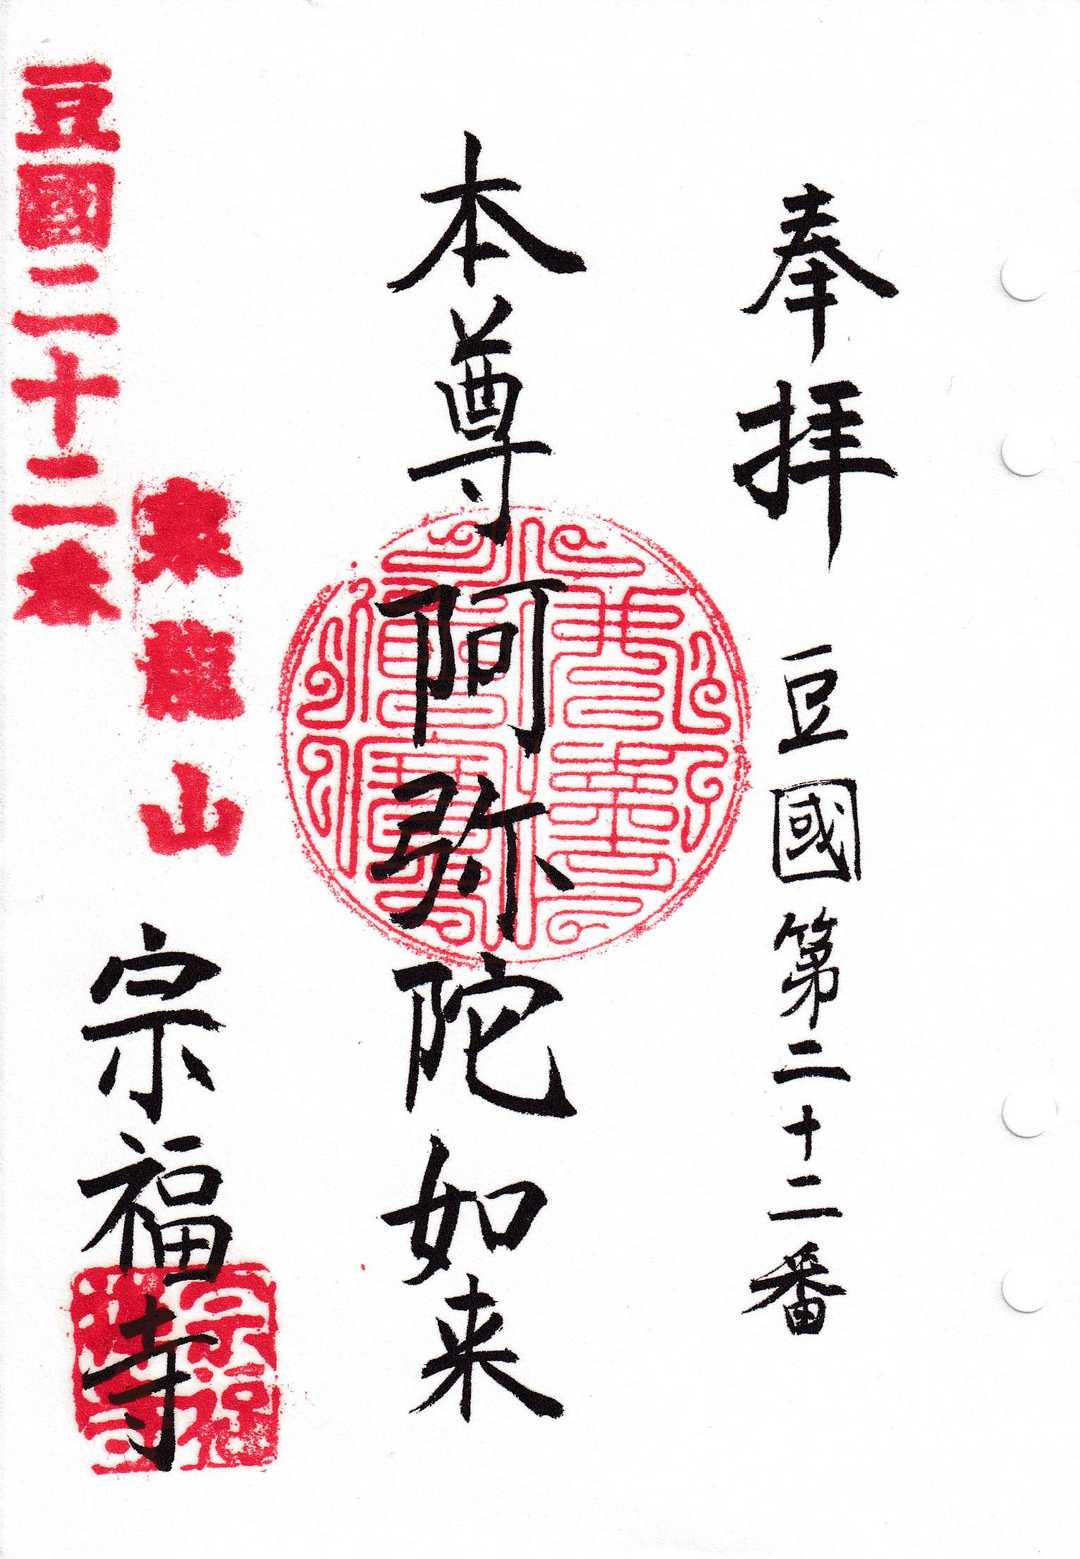 奉拝
豆國第二十二番
本尊阿弥陀如来
東龍山
宗福寺
豆國二十二番
宗福
寺